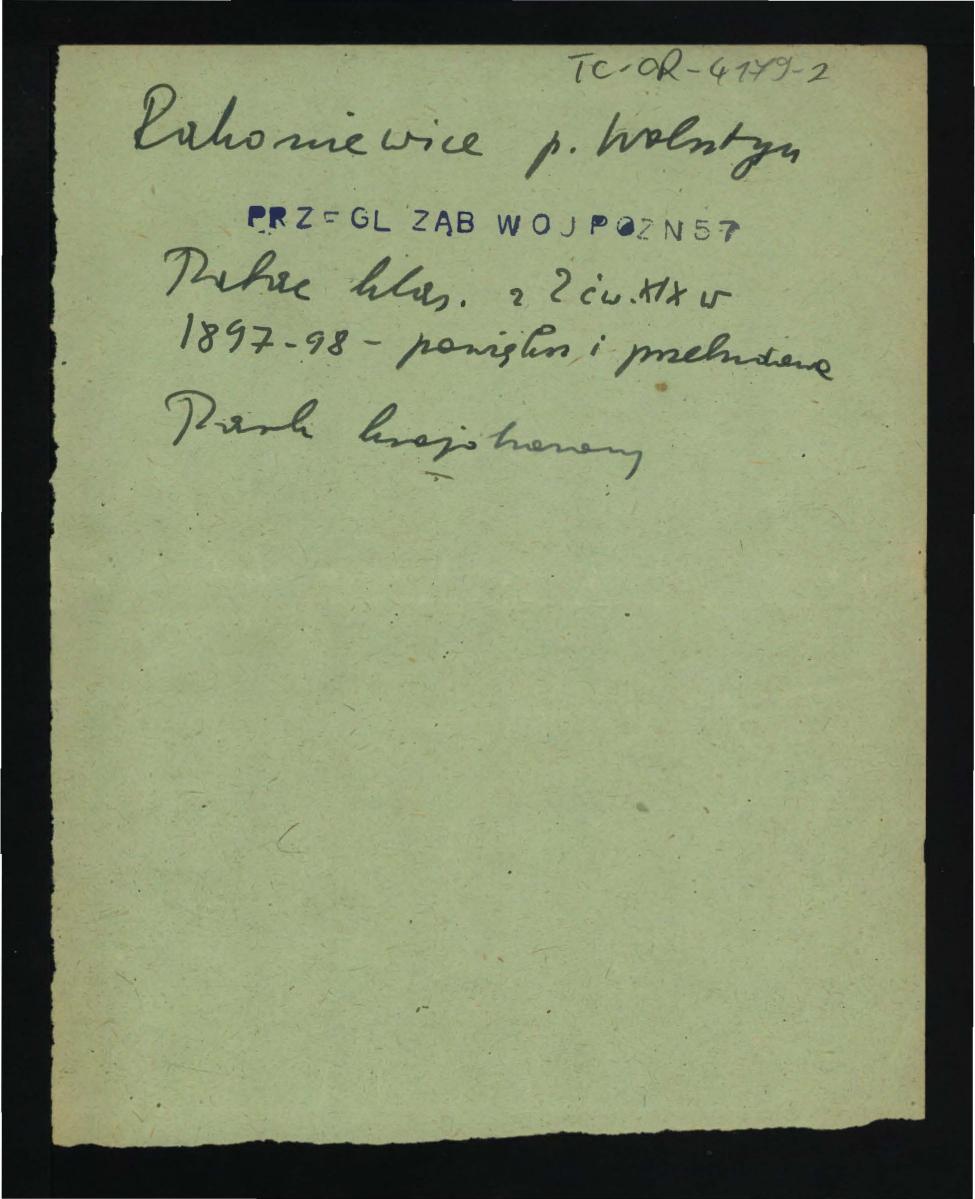 TC-OR-4179-2
Rakoniewice p. Wolsztyn
PRZEGL ZAB WOJ POZN 57
Pałac klas. z 2 ćw. XIX w
1897-98 - powiększ i przebudowa
Park krajobrazowy